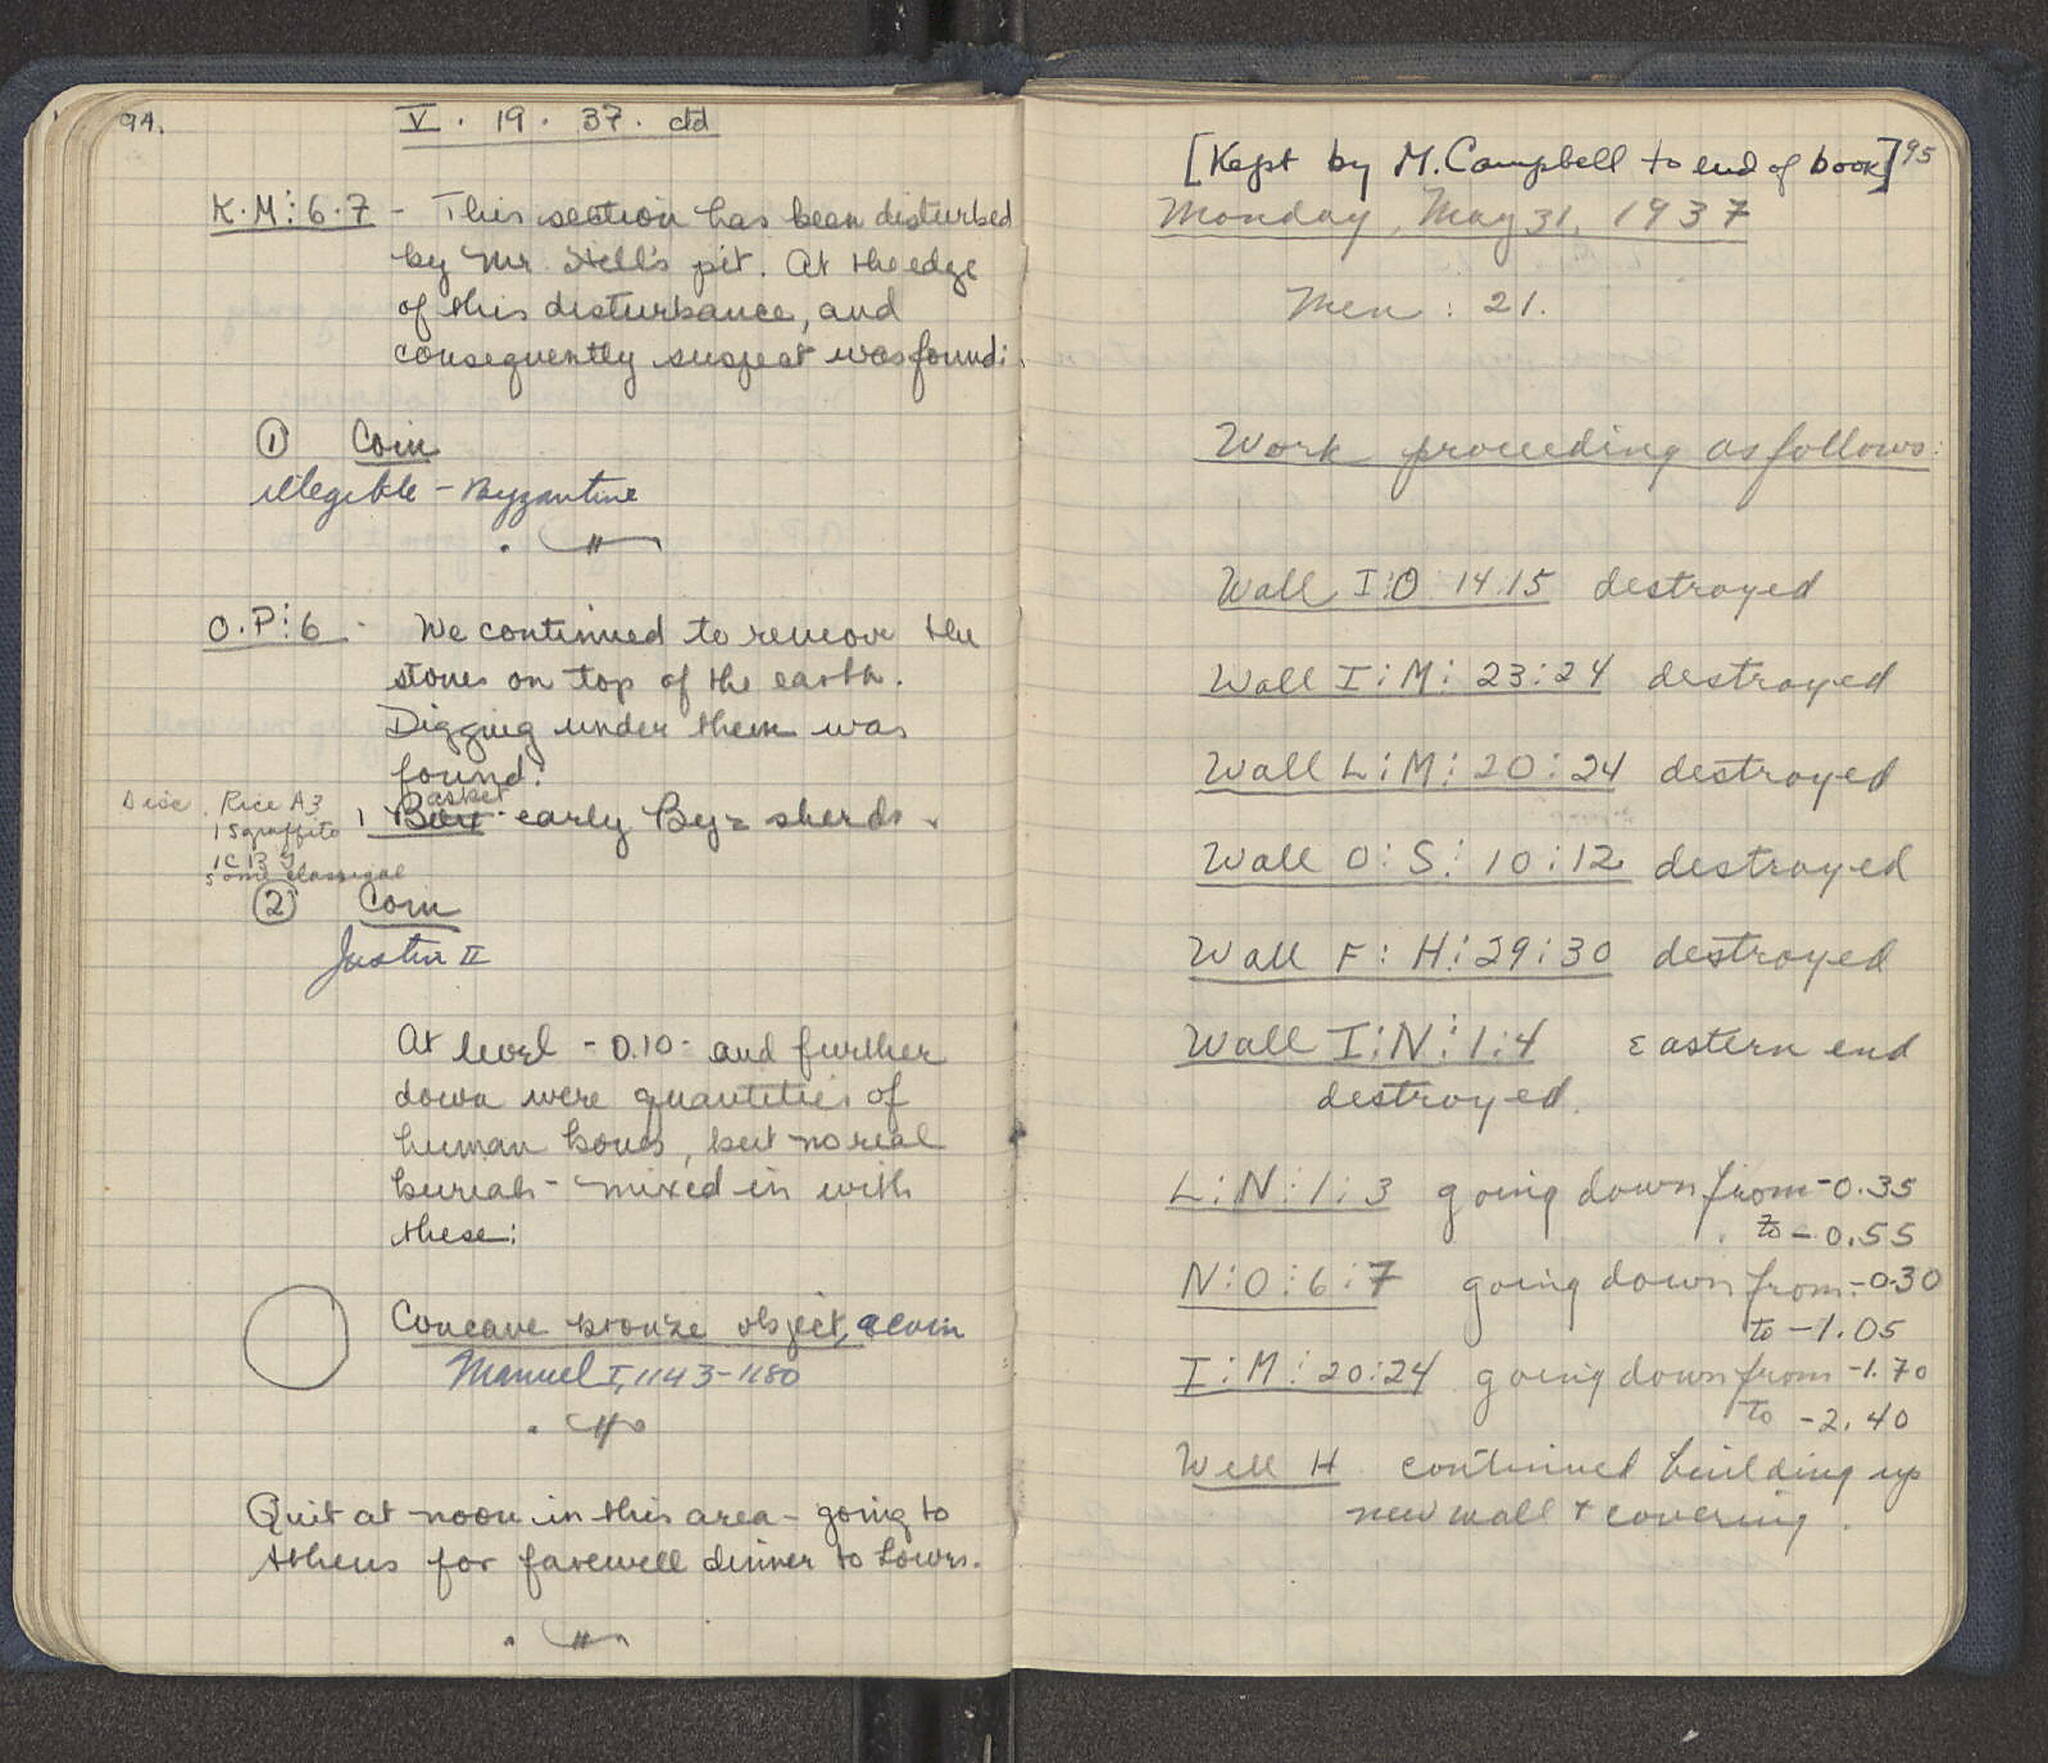 94.
V . 19 . 37. ctd
K.M:6.7 - This section has been disturbed
by Mr. Hill's pit. At the edge
of this disturbance, and
consequently suspect was found:
① Coin
illegible - Byzantine
O.P:6 - We continued to remove the
stones on top of the earth.
Digging under them was
found:
Disc. Rice A3
1 Sgraffito
some classical
1 Basket - early Byz sherds.
② Coin
Justin II
At level -0.10- and further
down were quantities of
human bones, but no real
burials - mixed in with
these:
Concave bronze object, a coin
Manuel I, 1143-1180
Quit at noon in this area - going to
Athens for farewell dinner to Lowrs.
[Kept by M. Campbell to end of book] 95
Monday, May 31, 1937
Men : 21.
Work proceeding as follows:
Wall I:O 14:15 destroyed
Wall I:M: 23:24 destroyed
Wall L:M: 20:24 destroyed
Wall O:S: 10:12 destroyed
Wall F:H:29:30 destroyed
Wall I:N:1:4 Eastern end
destroyed.
L:N:1:3 going down from -0.35
to -0.55
N:O:6:7 going down from -0.30
to -1.05
I:M:20:24 going down from -1.70
to -2.40
Well H continued building up
new wall + covering.